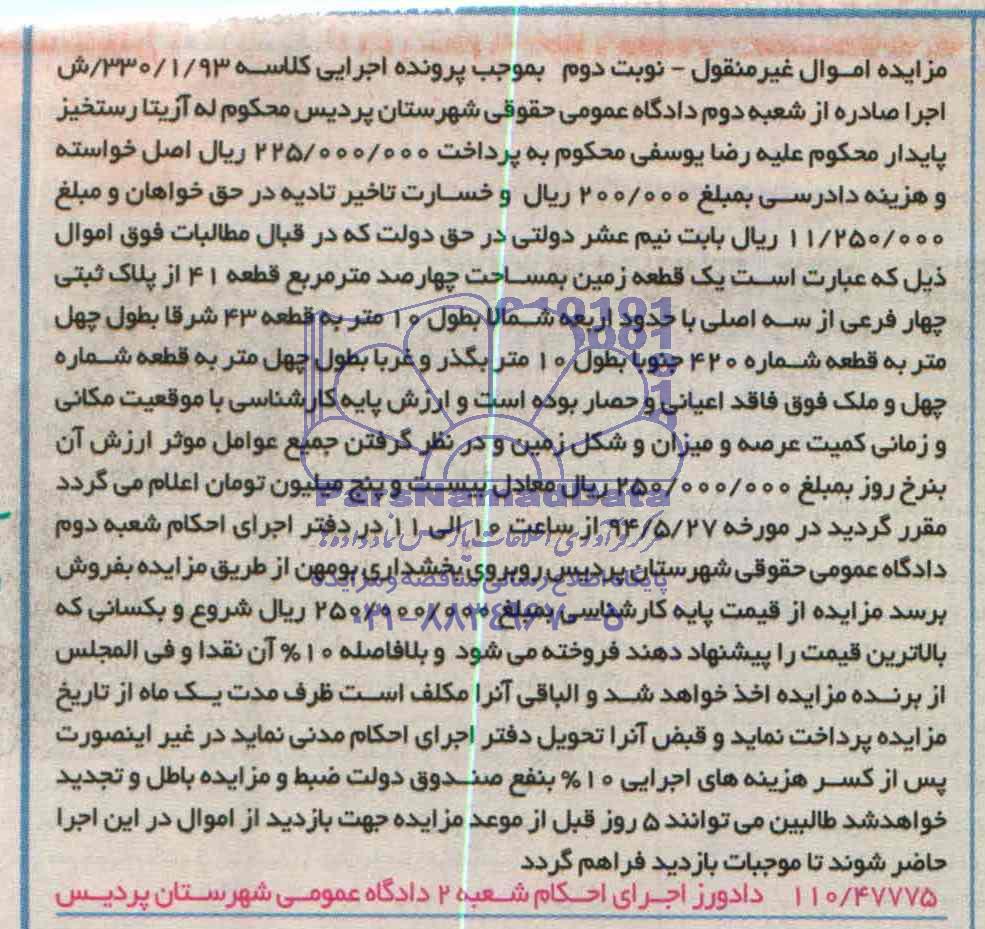 مزایده اموال غیرمنقول - نوبت دوم بموجب پرونده اجرایی کلاسه ۳۳۰/۱/۹۳/ش
اجرا صادره از شعبه دوم دادگاه عمومی حقوقی شهرستان پردیس محکوم له آزیتا رستخیز
پایدار محکوم علیه رضا یوسفی محکوم به پرداخت ۲۲۵/۰۰۰/۰۰۰ ریال اصل خواسته
و هزینه دادرسی بمبلغ ۲۰۰/۰۰۰ ریال و خسارت تاخیر تادیه در حق خواهان و مبلغ
۱۱/۲۵۰/۰۰۰ ریال بابت نیم عشر دولتی در حق دولت که در قبال مطالبات فوق اموال
ذیل که عبارت است یک قطعه زمین بمساحت چهارصد مترمربع قطعه ۴۱ از پلاک ثبتی
چهار فرعی از سه اصلی با حدود اربعه شمالا بطول ۱۰ متر به قطعه ۴۳ شرقا بطول چهل
متر به قطعه شماره ۴۲۰ جنوبا بطول ۱۰ متر بگذر و غربا بطول چهل متر به قطعه شماره
چهل و ملک فوق فاقد اعیانی و حصار بوده است و ارزش پایه کارشناسی با موقعیت مکانی
و زمانی کمیت عرصه و میزان و شکل زمین و در نظر گرفتن جمیع عوامل موثر ارزش آن
بنرخ روز بمبلغ ۲۵۰/۰۰۰/۰۰۰ ریال معادل بیست و پنج میلیون تومان اعلام می گردد
ParsNamadData
مقرر گردید در مورخه ۹۴/۵/۲۷ از ساعت ۱۰ الی ۱۱ در دفتر اجرای احکام شعبه دوم
دادگاه عمومی حقوقی شهرستان پردیس روبروی بخشداری بومهن از طریق مزایده بفروش
پایگاه اطلاع رسانی مناقصه و مزایده
برسد مزایده از قیمت پایه کارشناسی بمبلغ ۲۵۰/۰۰۰/۰۰۰ ریال شروع و بکسانی که
۰۲۱-۸۸۳۴۹۶۷۰-۵
بالاترین قیمت را پیشنهاد دهند فروخته می شود و بلافاصله ۱۰% آن نقدا و فی المجلس
از برنده مزایده اخذ خواهد شد و الباقی آنرا مکلف است ظرف مدت یک ماه از تاریخ
مزایده پرداخت نماید و قبض آنرا تحویل دفتر اجرای احکام مدنی نماید در غیر اینصورت
پس از کسر هزینه های اجرایی ۱۰% بنفع صندوق دولت ضبط و مزایده باطل و تجدید
خواهدشد طالبین می توانند ۵ روز قبل از موعد مزایده جهت بازدید از اموال در این اجرا
حاضر شوند تا موجبات بازدید فراهم گردد
۱۱۰/۴۷۷۷۵ دادورز اجرای احکام شعبه ۲ دادگاه عمومی شهرستان پردیس